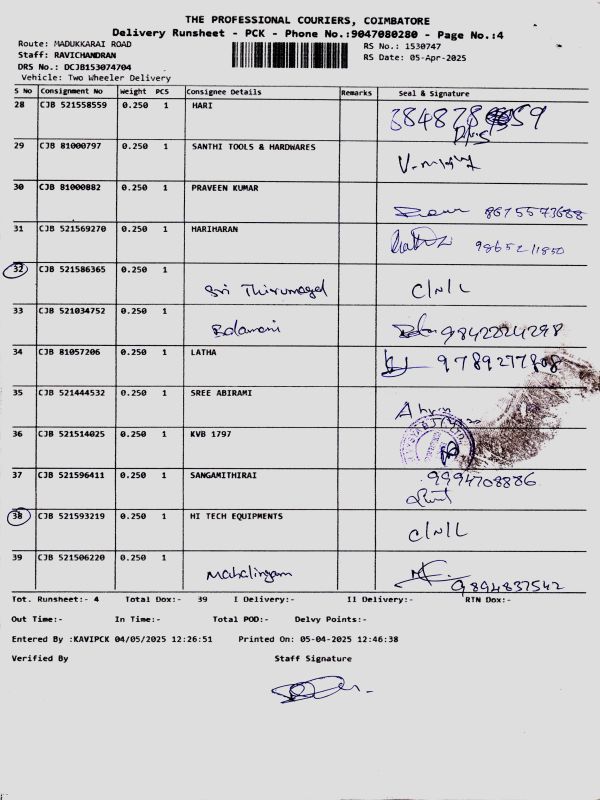 THE PROFESSIONAL COURIERS, COIMBATORE
Delivery Runsheet - PCK - Phone No.:9047080280 - Page No.:4
Route: MADUKKARAI ROAD
RS No.: 1530747
Staff: RAVICHANDRAN
RS Date: 05-Apr-2025
DRS No.: DCJB153074704
Vehicle: Two Wheeler Delivery
S No Consignment No Weight PCS Consignee Details Remarks Seal & Signature
28 CJB 521558559 0.250 1 HARI
29 CJB 81000797 0.250 1 SANTHI TOOLS & HARDWARES
30 CJB 81000882 0.250 1 PRAVEEN KUMAR 8675573688
31 CJB 521569270 0.250 1 HARIHARAN 9865211850
32 CJB 521586365 0.250 1 Sri Thirumagal C/N/L
33 CJB 521034752 0.250 1 Balamani 9842224298
34 CJB 81057206 0.250 1 LATHA
35 CJB 521444532 0.250 1 SREE ABIRAMI
36 CJB 521514025 0.250 1 KVB 1797
37 CJB 521596411 0.250 1 SANGAMITHIRAI 9994708886
38 CJB 521593219 0.250 1 HI TECH EQUIPMENTS C/N/L
39 CJB 521506220 0.250 1 Mahalingam 9894837542
Tot. Runsheet:- 4 Total Dox:- 39 I Delivery:- II Delivery:- RTN Dox:-
Out Time:- In Time:- Total POD:- Delvy Points:-
Entered By :KAVIPCK 04/05/2025 12:26:51 Printed On: 05-04-2025 12:46:38
Verified By Staff Signature